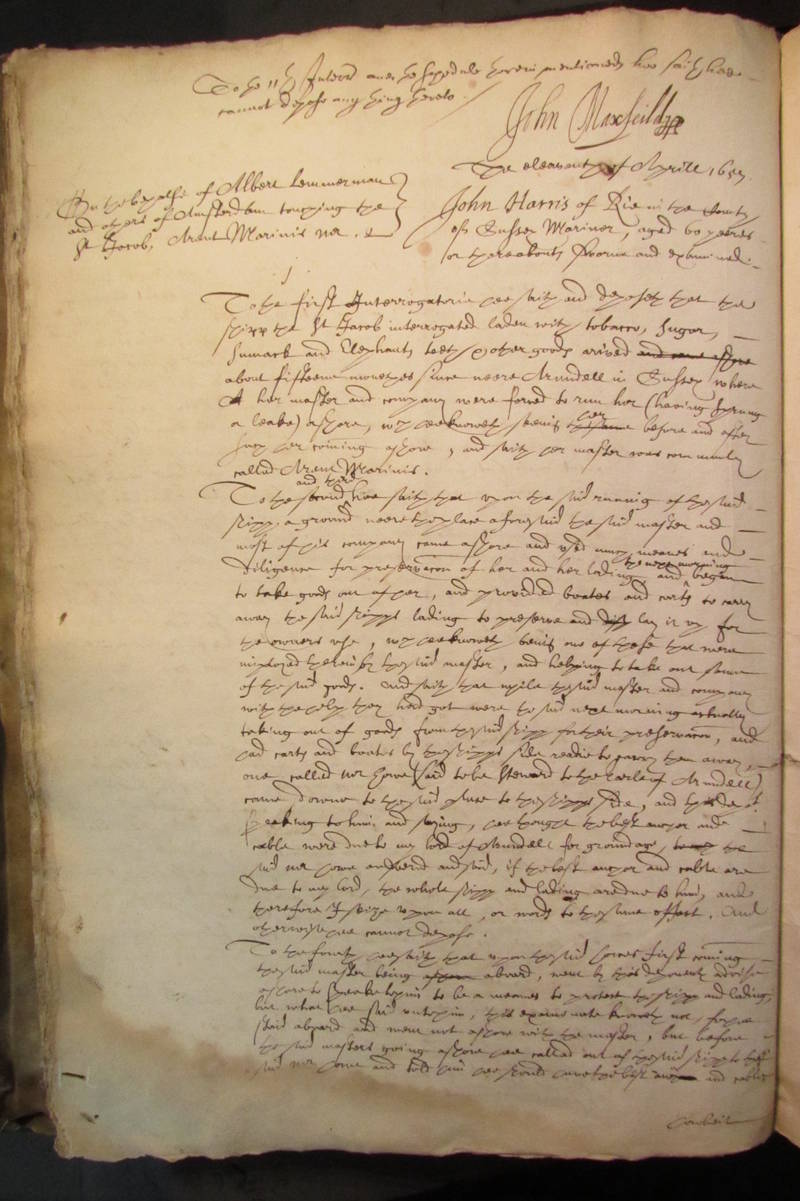 To the 11th Interr and the schedule therein mentioned hee saith hee
cannot depose any thing hereto.
John Maxfeild
The eleaventh of Aprill 1659
On the behalfe of Albert Lemmerman
and others of Amsterdam touching the
St Jacob, Arent Marinis Mr.
John Harris of Rie in the County
of Sussex Mariner, aged 60 yeeres
or thereabouts sworne and examined.
1
To the first Interrogatorie hee saith and deposeth that the
shipp the St Jacob interrogated laden with tobacco, sugar,
sumack and Elephants teeth and other goods arived and came ashore
about fifteene monethes since neere Arundell in Sussex where
her master and company were forced to run her (having sprung
a leake) ashore, which hee knoweth seeing her before and after
such her coming ashore, and saith her master was commonly
called Arent Marinis.
To the second and third hee saith that upon the said running of the said
shipp a ground neere the place aforesaid the said master and
most of his company came ashore and used many meanes and
diligence for preservacon of her and her lading, and the next morning began
to take goods out of her, and provided boates and carts to carry
away the said shipps lading to preserve and lay it up for
the owners use, which hee knoweth being one of those that were
imployed therein by the said master, and helping to take out some
of the said goods. And saith that while the said master and company
with the help they had got were the said next morning actually
taking out of goods from the said shipp for their preservacon, and
had carts and boates by the shipps side readie to carry them away,
one called Mr Howe (said to be Steward to the Earle of Arundell)
came downe to the said place to the shipps side, and this dept
speaking to him and saying, hee thought the best anchor and
cable were due to my lord of Arundell for groundage, the
said Mr Howe answered and said, if the best anchor and cable are
due to my Lord, the whole shipp and lading are due to him, and
therefore I seize upon all, or words to the same effect. And
otherwise hee cannot depose.
To the fourth hee saith that upon the said Howes first coming
the said master being aboard, went by this deponents advise
ashore to speake to him to be a meanes to protect the shipp and lading,
but what hee said unto him, this examinate knoweth not, for hee
staid aboard and went not ashore with the master, but before
the said masters going ashore hee called out of the said shipp to the
said Mr Howe and told him hee should have the best anchor and cable